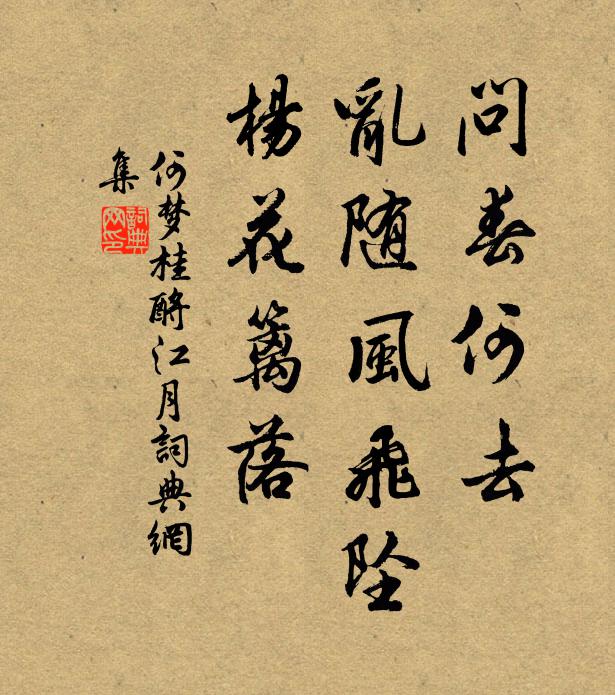 問春何去
亂随風飛坠
楊花籬落
何梦桂酹江月詞典網
集
詞典
网印